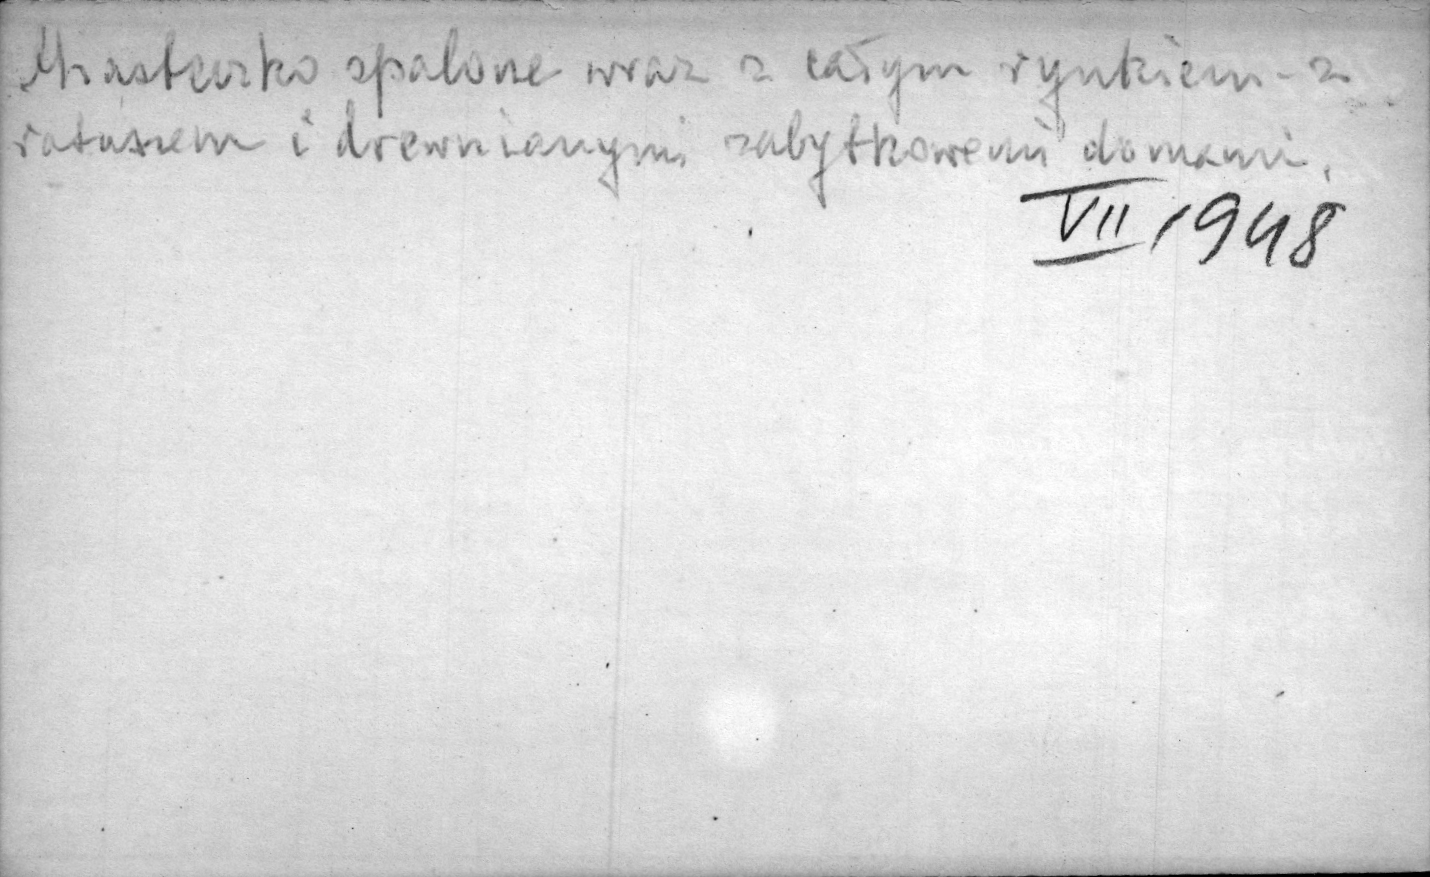 Miasteczko spalone wraz z całym rynkiem - z
ratuszem i drewnianymi zabytkowemi domami.
VII 1948